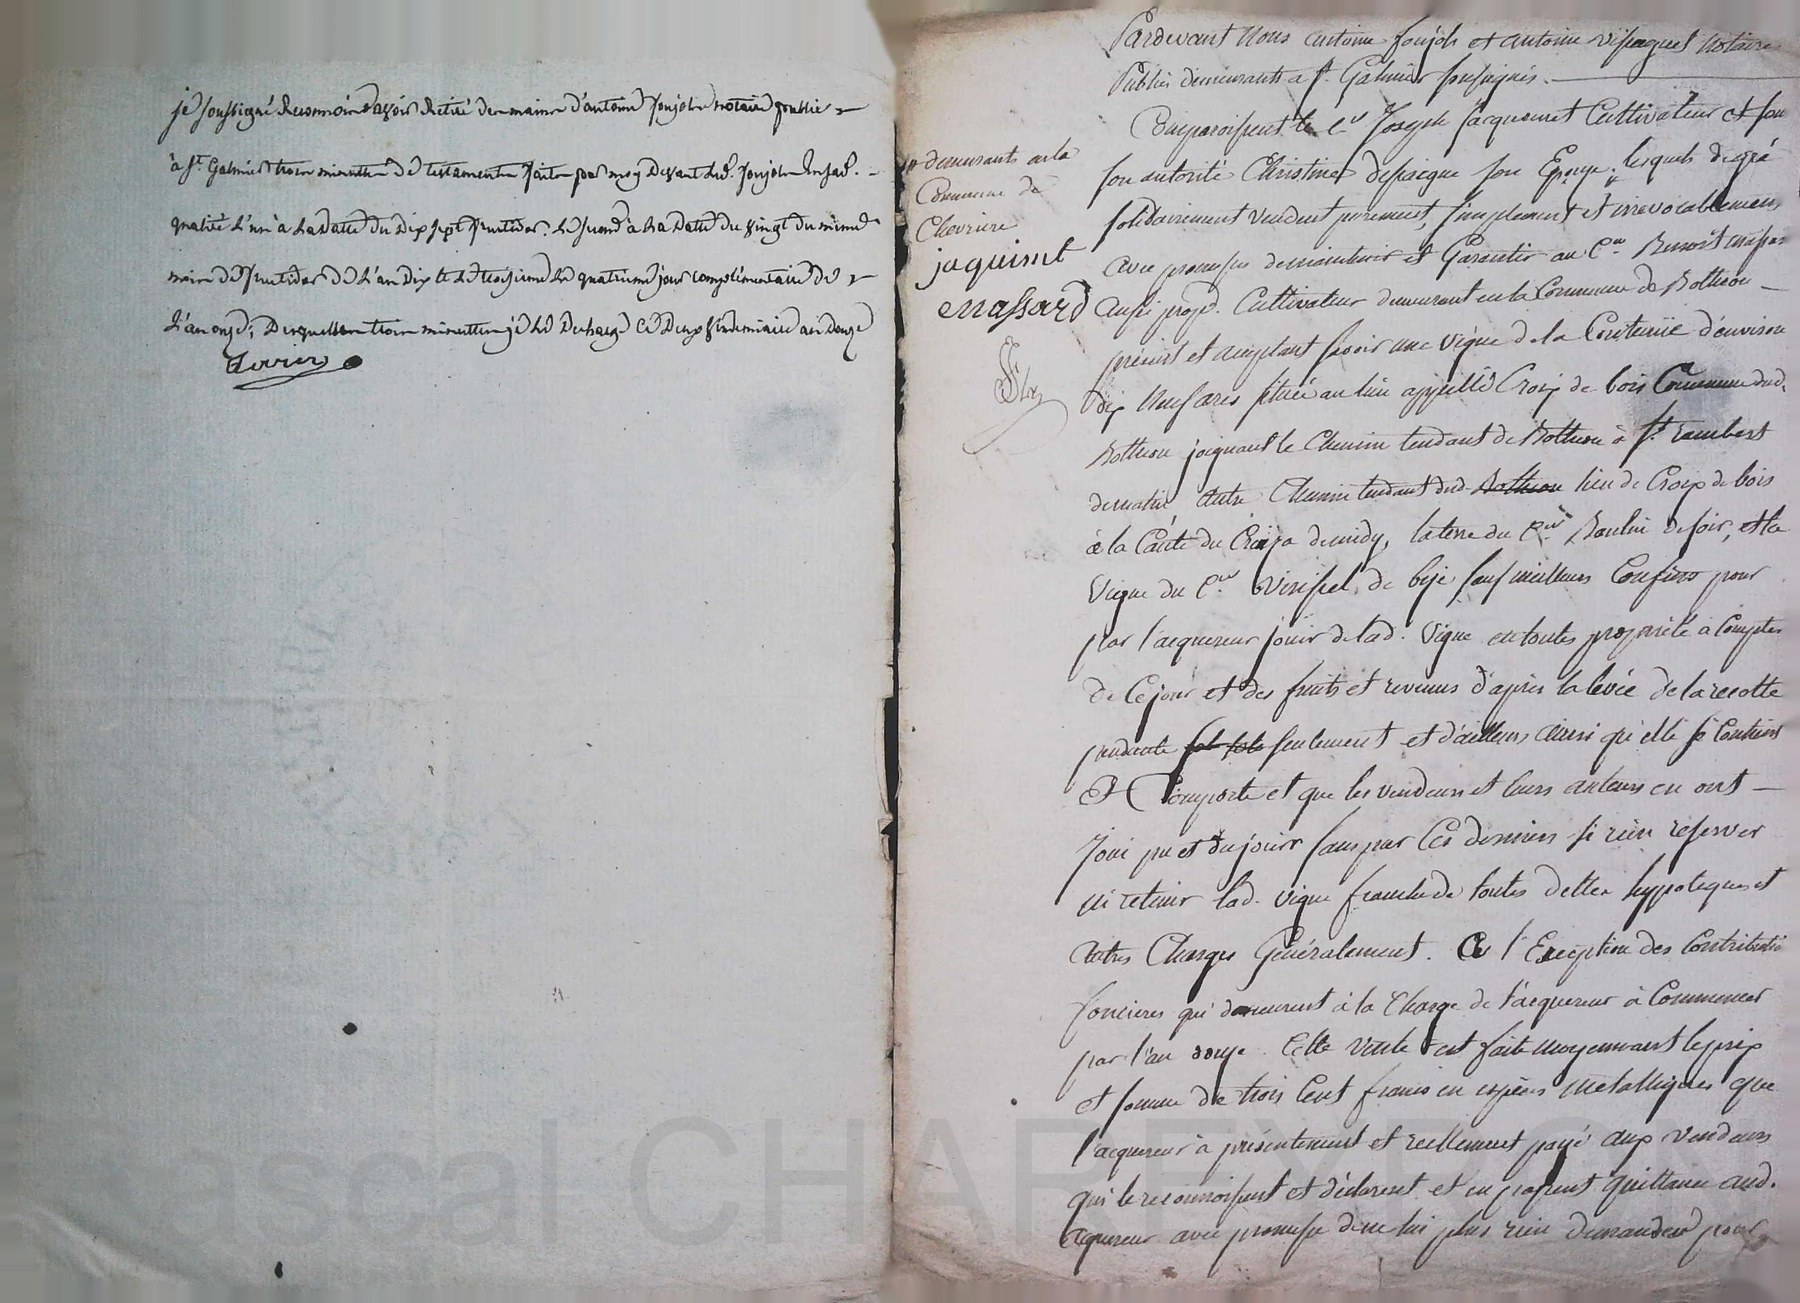 je soussigné Reconnoir d'avoir Retiré des mains d'antoine Jonjols notaire public
à St. Galmier trois minuttes de testaments faits par moy Devant led. Jonjols en sad.
qualité L'un à La Datte du Dix sept fructidor. Le second à La Datte du vingt du même
mois de fructidor de L'an Dix et Le troisieme Le quatrieme jour complémentaire de
L'an onze; Desquelles trois minuttes je Le Decharge Ce Deux vendemiaire an Douze
Pardevant Nous antoine Jonjols et antoine notaires
Publics demeurants a St. Galmier soussignés.
Comparoissent le Cen Joseph Jacquemet Cultivateur et sou
son autorité Christine son Epouse, lesquels de gré
solidairement vendent purement, simplement et irrevocablement
avec promesse de maintenir et Garantir au Cen. Benoit massar
aussi prop. Cultivateur demeurant en la Commune de Botheon
présent et acceptant savoir une vigne de la Contenüe d'environ
dix neuf ares située au lieu appellé Croix de bois Commune dud.
Botheon joignant le Chemin tendant de Botheon à St. rambert
de matin, autre Chemin tendant dud. Botheon lieu de Croix de bois
à la de midy, la terre du Cen. de soir, et la
Vigne du Cen. de bize sauf meilleurs Confins pour
par l'acquereur jouir de lad. Vigne en toutes propriété à Compter
de Ce jour et des fruits et revenus d'après la levée de la recolte
pendante seulement et d'ailleurs ainsi qu'elle se Contient
Et Comporte et que les vendeurs et leurs auteurs en ont
Joui pu et du jouir sans par Ces derniers se rien reserver
ni retenir lad. Vigne franche de toutes dettes hypoteques et
autres Charges Généralement. à l'Exception des Contributio
foncieres qui demeurent à la Charge de l'acquereur à Commencer
par l'an douze. Cette vente est faite moyennant le prix
et somme de trois Cent francs en espèces métalliques que
l'acquereur à présentement et reellement payé aux Vendeurs
qui le reconnoissent et déclarent et en passent quittance aud.
acquereur avec promesse de ne lui plus rien demander pour
demeurants en la
Commune de
Chevriere
jaquimt
massard
Pascal CHAREYRON